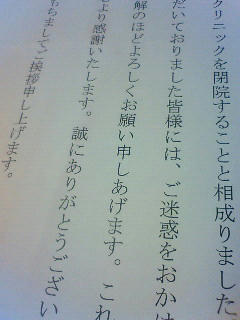 クリニックを閉院することと相成りました
だいておりました皆様には、ご迷惑をおかけ
解のほどよろしくお願い申しあげます。これ
より感謝いたします。誠にありがとうござい
もちましてご挨拶申し上げます。